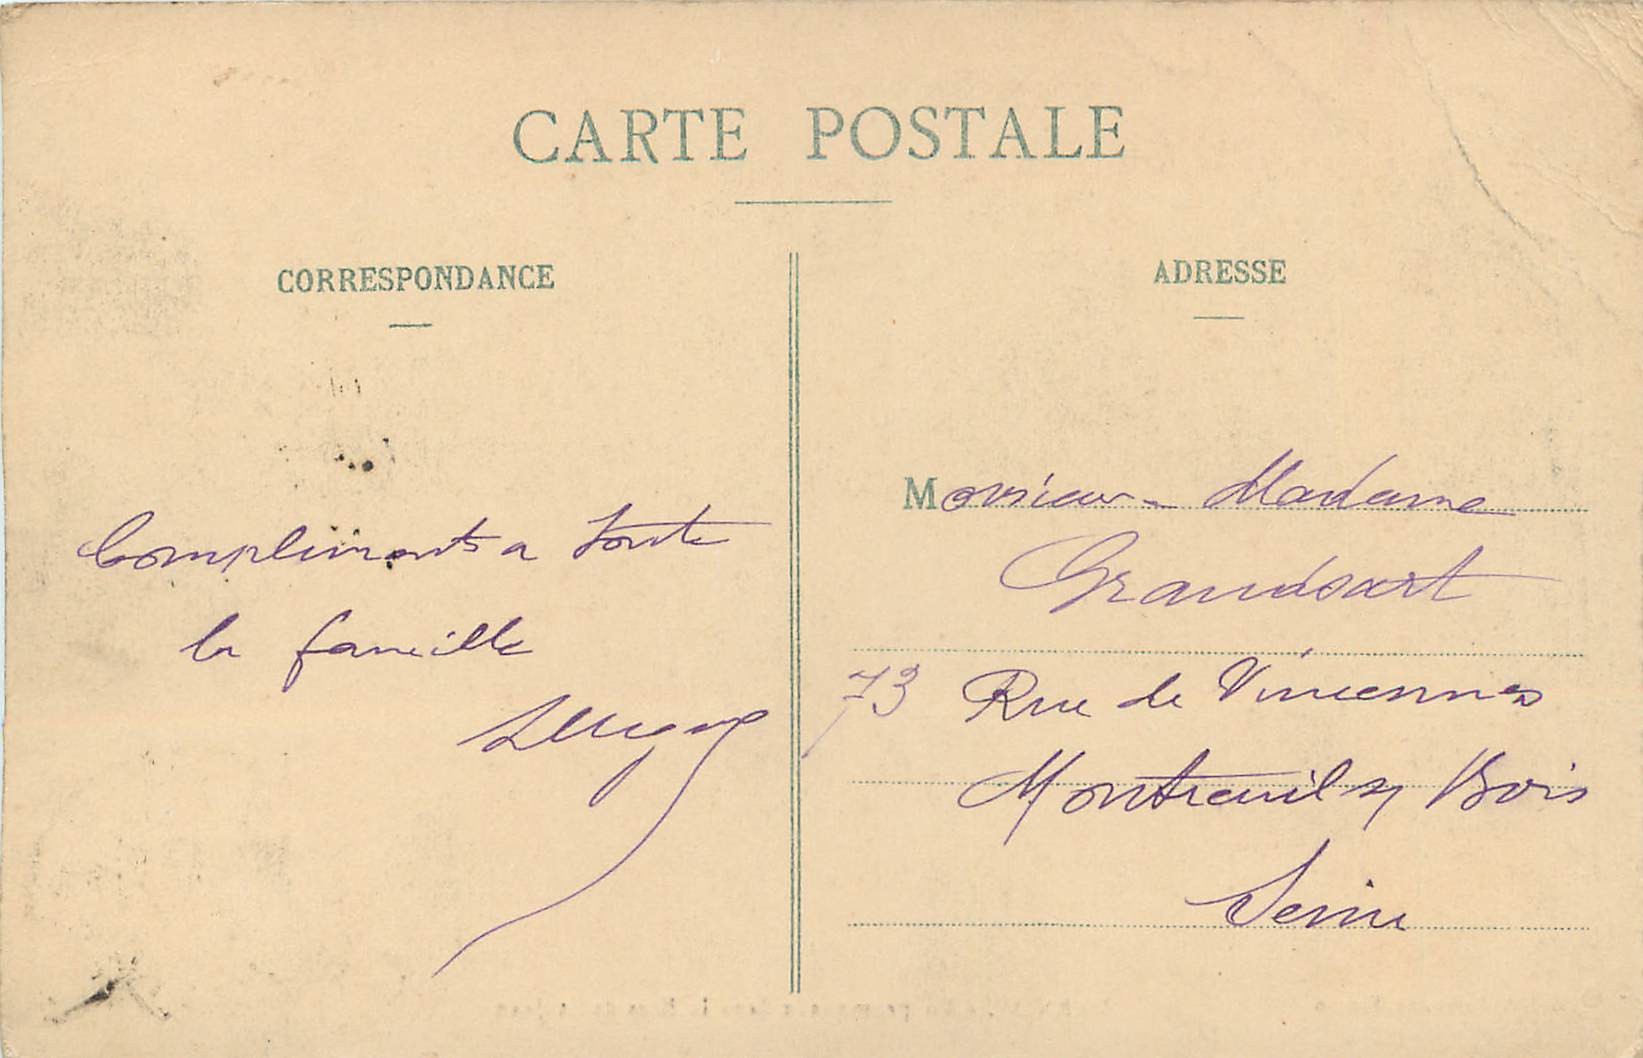 CARTE POSTALE
CORRESPONDANCE
Compliments a toute
la famille
ADRESSE
Monsieur - Madame
Grandsart
73 Rue de Vincennes
Montreuil s/ Bois
Seine